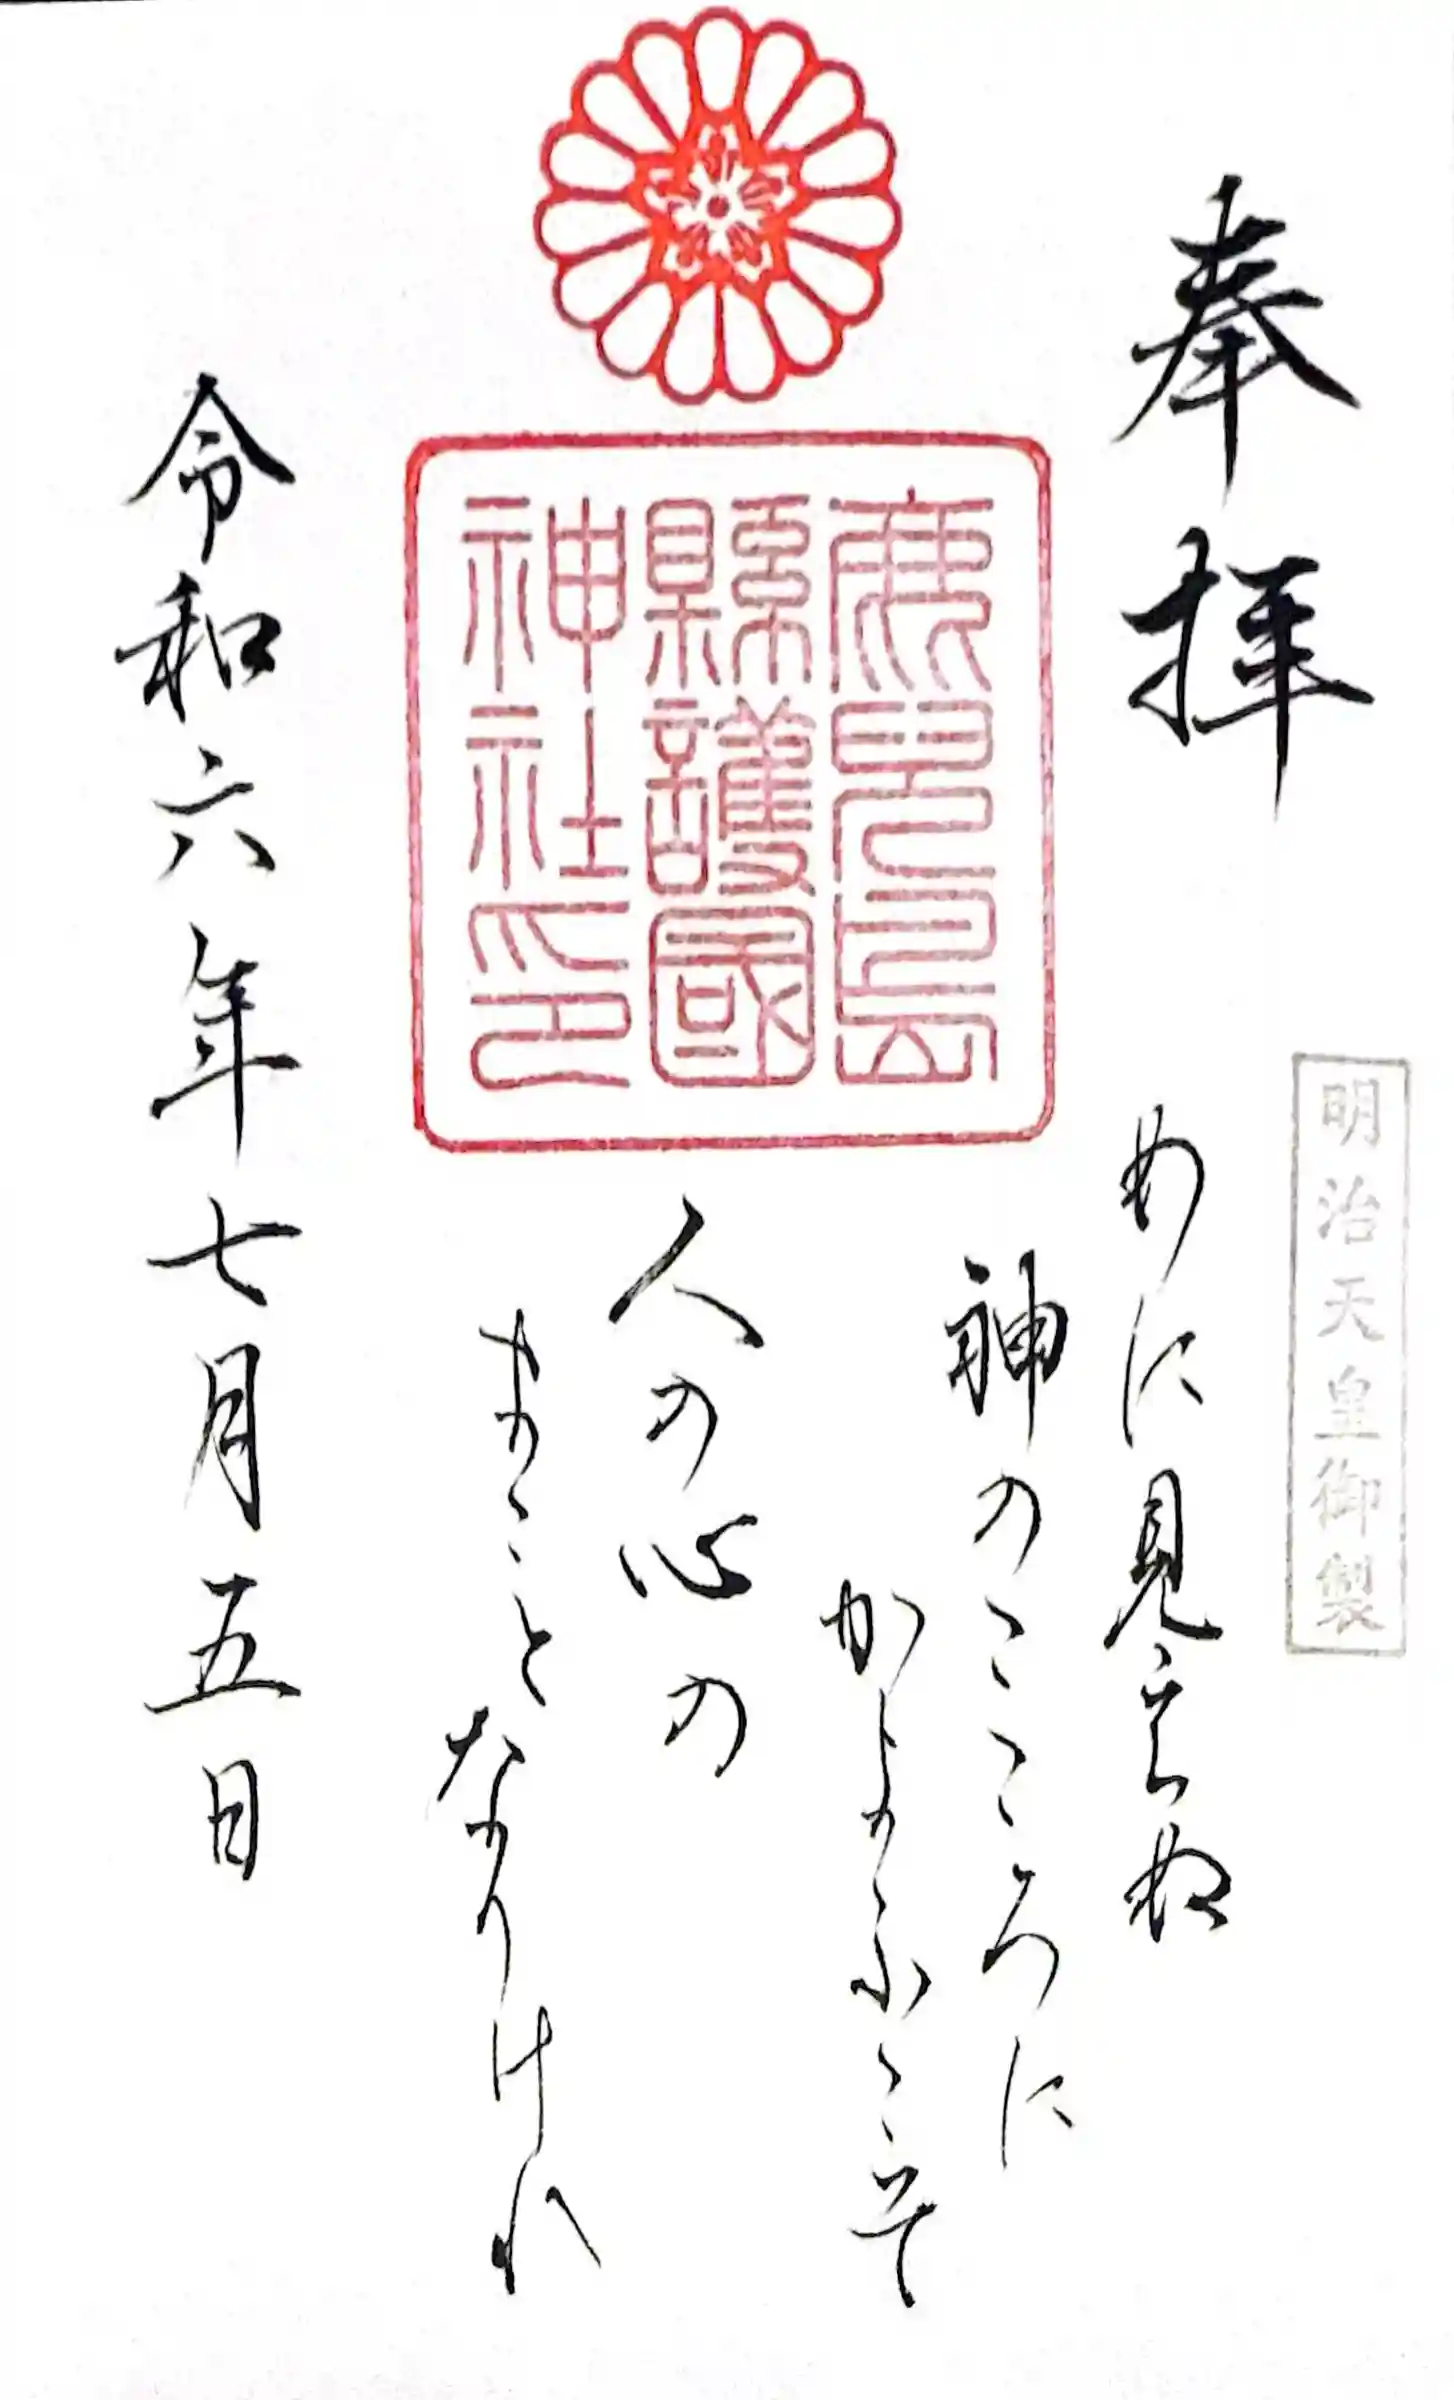 奉拝
明治天皇御製
めに見えぬ
神のこころに
かよふこそ
人の心の
まことなりけれ
鹿兒島
縣護國
神社印
令和六年七月五日